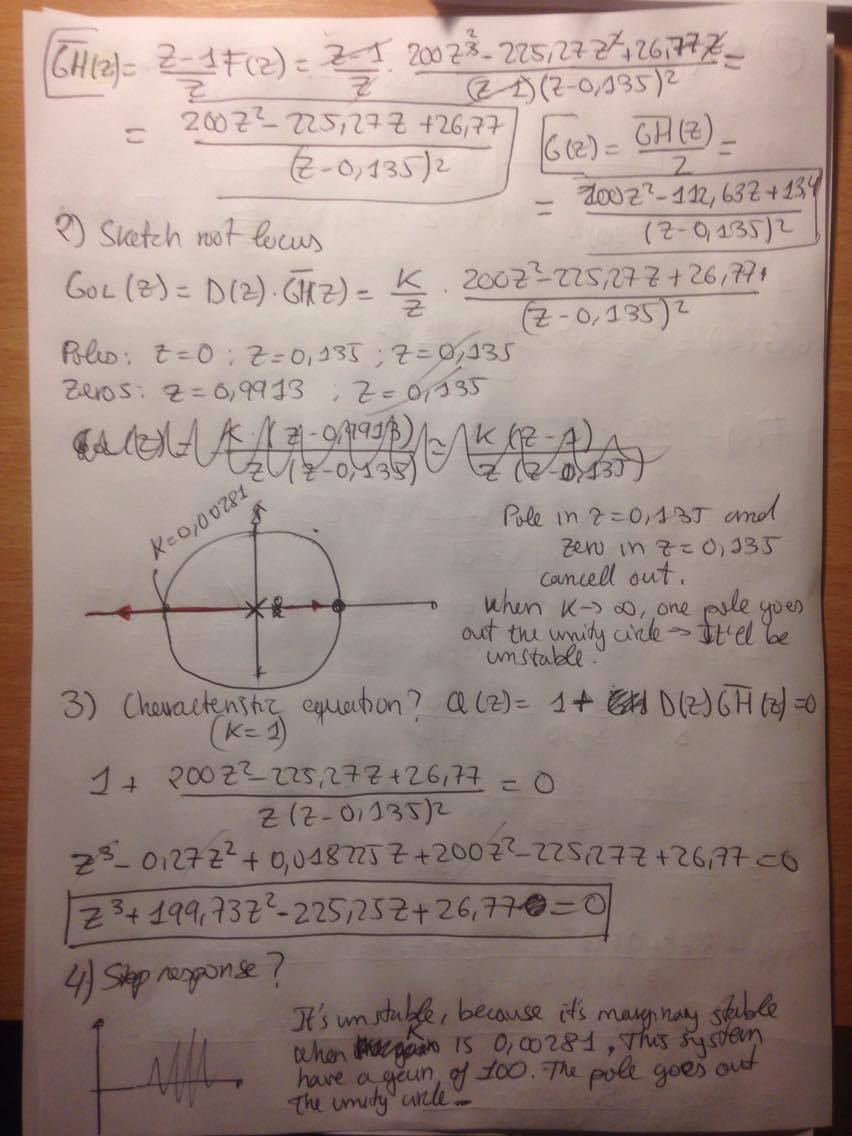 G̅H̅(z) = (z-1)/z F(z) = (z-1)/z · (200z³ - 225,27z² + 26,77z)/((z-1)(z-0,135)²) =
= (200z² - 225,27z + 26,77)/((z-0,135)²)
G̅(z) = G̅H̅(z)/2 =
= (100z² - 112,63z + 13,4)/((z-0,135)²)
2) Sketch root locus
GOL(z) = D(z)·G̅H̅(z) = K/z · (200z² - 225,27z + 26,77)/((z-0,135)²)
Poles: z=0 ; z=0,135 ; z=0,135
Zeros: z=0,9913 ; z=0,135
(z) = K (z-0,9913)/(z (z-0,135)) = K (z-1)/(z (z-0,135))
K=0,00281
Pole in z=0,135 and
zero in z=0,135
cancell out.
When K→∞, one pole goes
out the unity circle → It'll be
unstable.
3) Characteristic equation? Q(z) = 1 + D(z)G̅H̅(z)=0
(K=1)
1 + (200z² - 225,27z + 26,77)/(z(z-0,135)²) = 0
z³ - 0,27z² + 0,018225z + 200z² - 225,27z + 26,77 = 0
z³ + 199,73z² - 225,25z + 26,77 = 0
4) Step response?
It's unstable, because it's marginary stable
when K is 0,00281, This system
have a gain of 100. The pole goes out
the unity circle